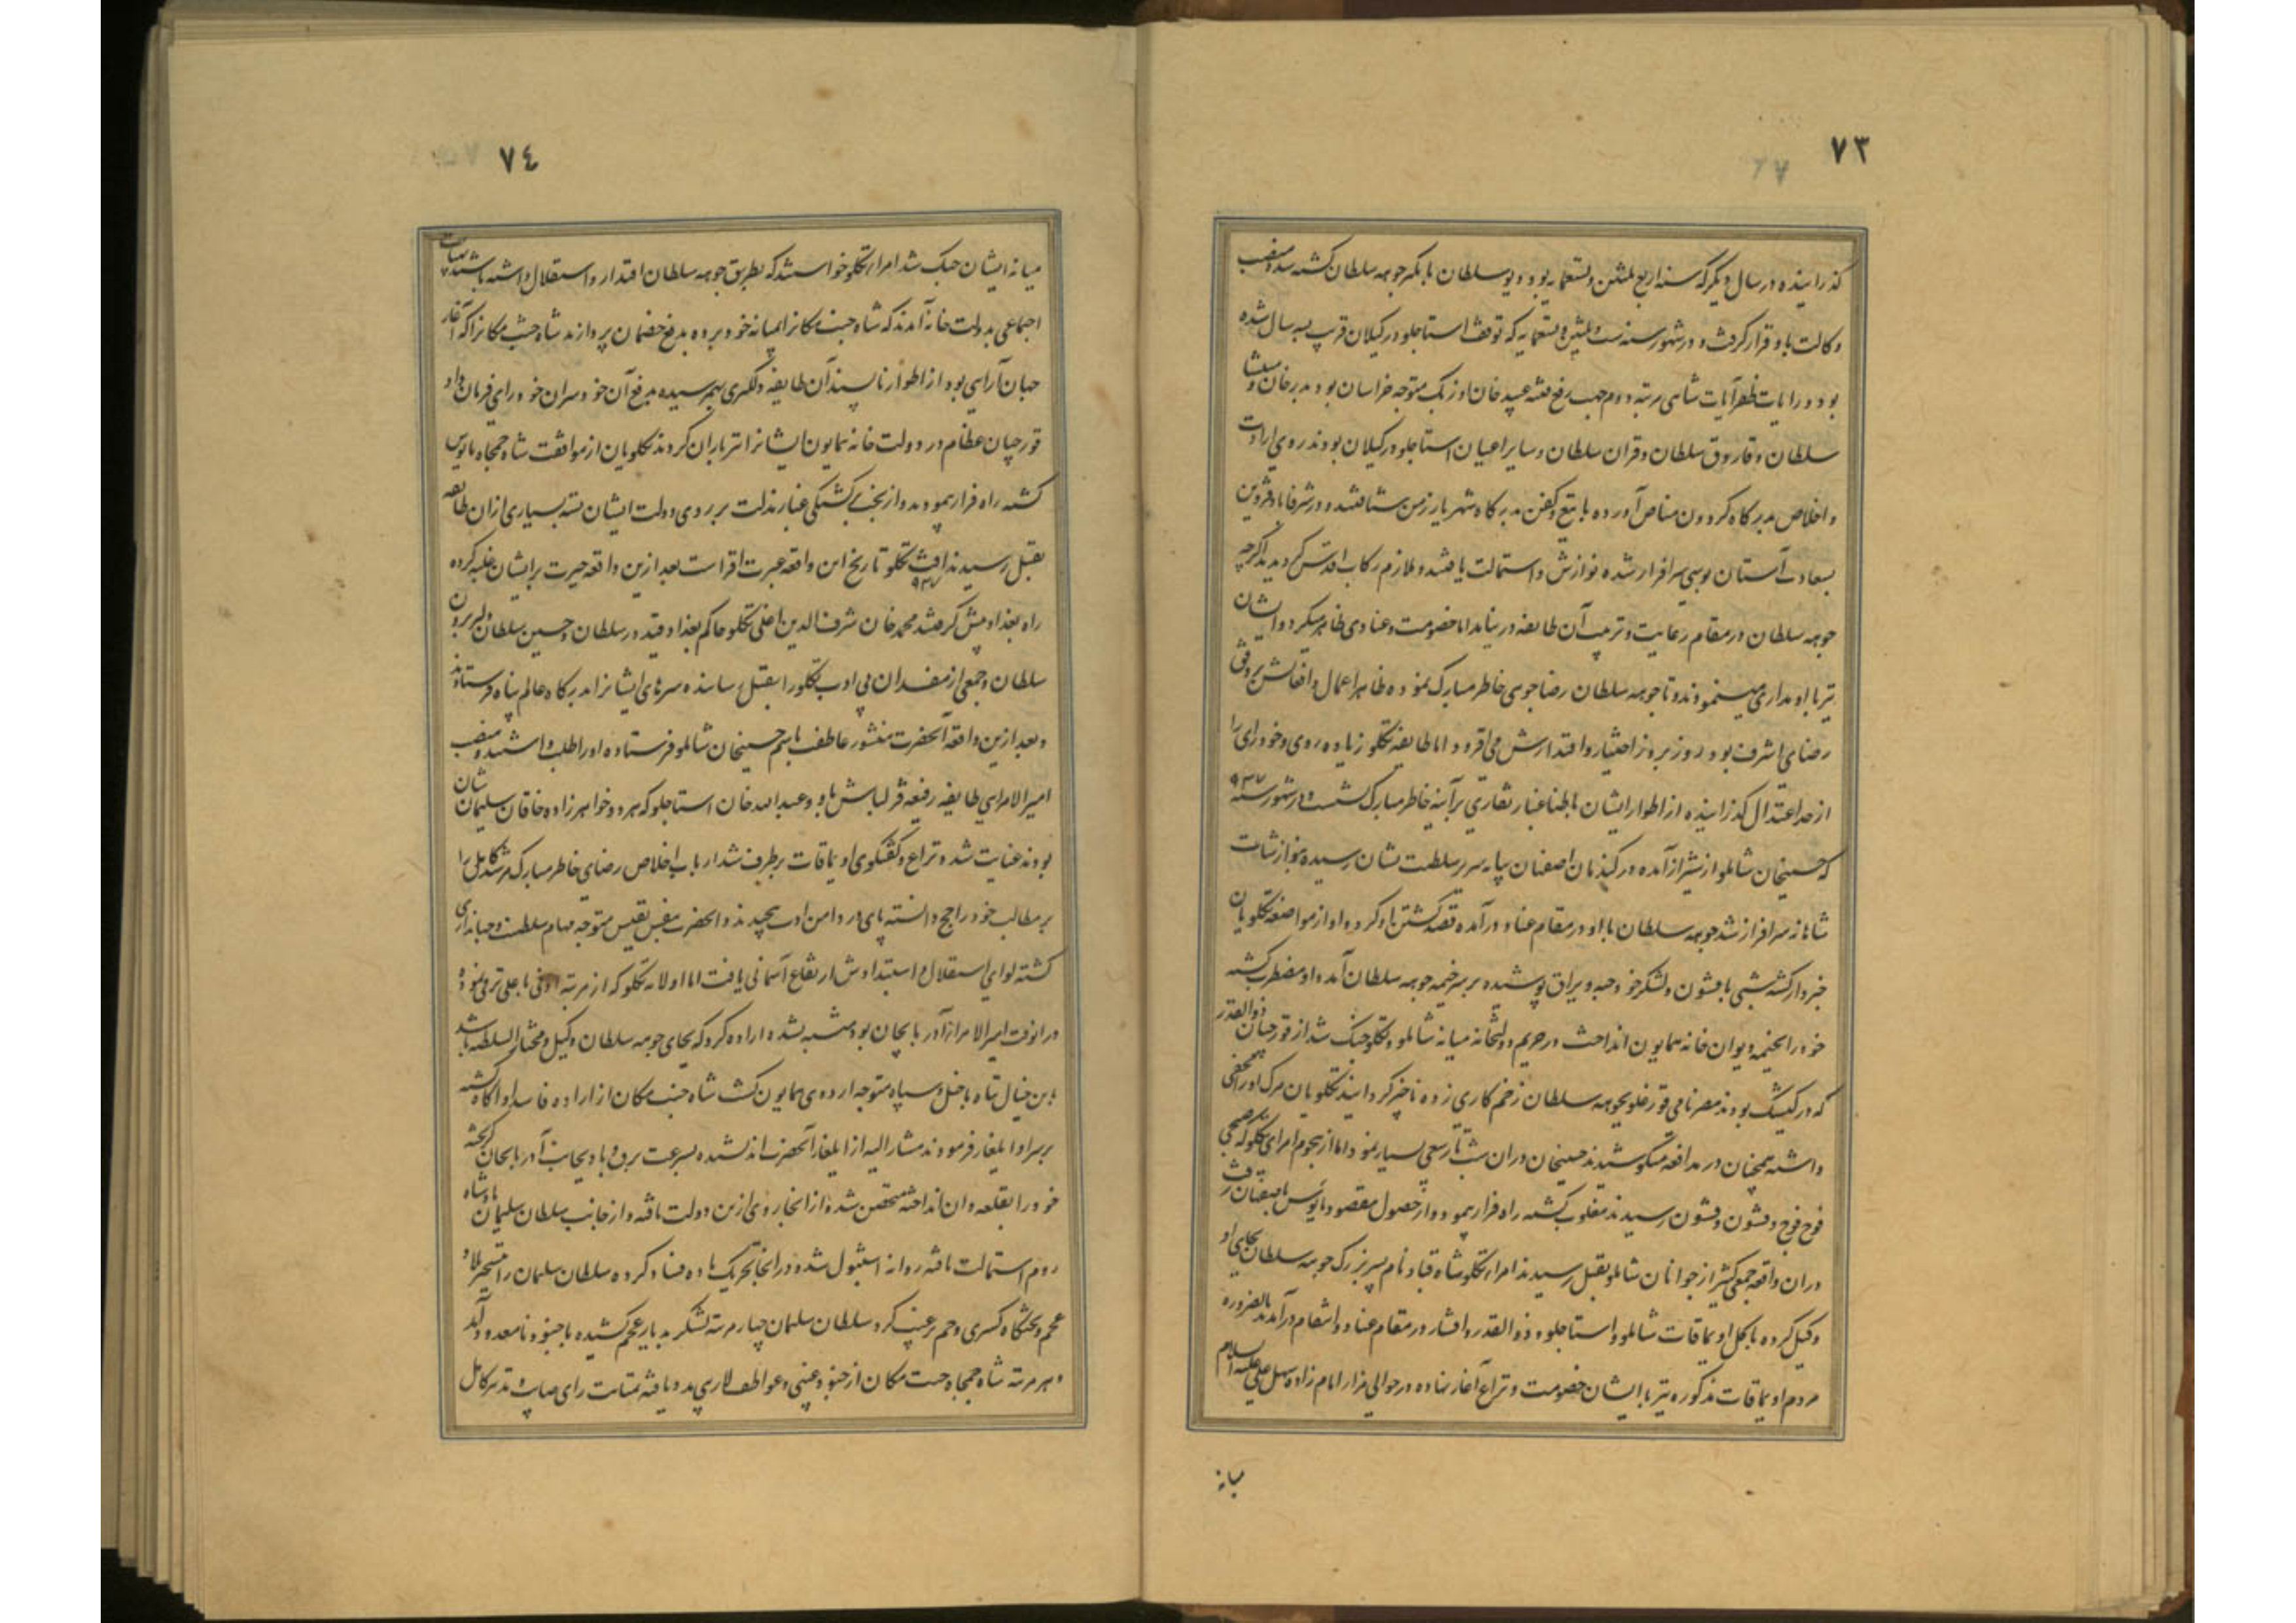 ٧٣
گذرانیده در سال دیگر که سنه اربع ثلثین و تسعمایه بود دیو سلطان با بکر جوهه سلطان کشته شد و منصب
وکالت باو قرار گرفت و در شهور سنه ست و ثلثین و تسعمایه که توقف استاجلو در کیلان قریب بسه سال شده
بود و رایات ظفر آیات شاهی مرتبه دوم جهت رفع فتنه عبید خان اوزبک متوجه خراسان بود بدر خان و منتشا
سلطان و قاروق سلطان و قران سلطان و سایر اعیان استاجلو در کیلان بودند روی ارادت
و اخلاص بدرگاه کردون مناص آورده با تیغ و کفن بدرگاه شهریار زمن شتافتند و در شرفاباد قزوین
بسعادت آستان بوسی سرافراز شده نوازش و استمالت یافتند و ملازم رکاب اقدس گردیدند اگرچه
جوهه سلطان در مقام رعایت و تربیت آن طایفه در نیامد اما خصومت و عنادی ظاهر نمیکرد و ایشان
نیز با او مداری مینمودند و تا جوهه سلطان رضا جوی خاطر مبارک نموده ظاهر اعمال و افعالش بر وفق
رضای اشرف بود روز بروز اختیار و اقتدارش می افزود اما طایفه تکلو زیاده روی و خودرای را
از حد اعتدال گذرانیده از اطوار ایشان باطنا غبار نقاری بر آینه خاطر مبارک نشست و در شهور سنه ٩٣٧
که حسینخان شاملو از شیراز آمده در کندمان اصفهان بپایه سریر سلطنت نشان رسیده بنوازشات
شاهانه سرافراز شد جوهه سلطان با او در مقام عناد درآمده قصد کشتن او کرده او از مواضعه تکلویان
خبردار کشته شبی با قشون و لشکر خود جبه و یراق پوشیده بر سر خیمه جوهه سلطان آمده او مضطرب کشته
خود را بخیمه دیوان خانه همایون انداخت در حریم دولتخانه میانه شاملو و تکلو جنک شد از قورچیان ذوالقدر
که در کشیک بودند مصر نامی قورغلو بجوهه سلطان زخم کاری زده ناچیز گردانید تکلویان مرک او را مخفی
داشته همچنان در مدافعه میکوشیدند حسینخان در ان شب تار سعی بسیار نمود اما از هجوم امرای تکلو که صبحی
فوج فوج و قشون و قشون رسیدند مغلوب کشته راه فرار پیمود و از حصول مقصود مایوس باصفهان رفت
در ان واقعه جمعی کثیر از جوانان شاملو بقتل رسیدند امراء تکلو شاه قباد نام پسر بزرک جوهه سلطان بجای او
وکیل کرده با کل اویماقات شاملو و استاجلو و ذوالقدر و افشار در مقام عناد و انتقام درآمدند بالضروره
مردم اویماقات مذکوره نیز با ایشان خصومت و نزاع آغاز نهاده در حوالی مزار امام زاده سهل علی علیه السلام
میانه
٧٤
میانه ایشان جنک شد امراء تکلو خواستند که بطریق جوهه سلطان اقتدار و استقلال داشته باشند بهیات
اجماعی بدولت خانه آمدند که شاه جنت مکانرا بمیانه خود برده بدفع خصمان پردازند شاه جنت مکانرا که آغاز
جهان آرایی بود از اطوار ناپسند آن طایفه دلگیری بهم رسیده بدفع آن خود سران خود رای فرمان داد
قورچیان عظام در دولت خانه همایون ایشانرا تیرباران کردند تکلویان از موافقت شاه جمجاه مایوس
کشته راه فرار پیمودند و از بخت کشتگی غبار مذلت بر روی دولت ایشان نشسته بسیاری از ان طایفه
بقتل رسیدند آفت تکلو تاریخ این واقعه عبرت افزاست بعد ازین واقعه حیرت بر ایشان غلبه کرده
٩٣٧
راه بغداد پیش گرفتند محمد خان شرف الدین اغلی تکلو حاکم بغداد قیدر سلطان و حسین سلطان و لر برون
سلطان و جمعی از مفسدان بی ادب تکلو را بقتل رسانده سرهای ایشانرا بدرگاه عالم پناه فرستادند
و بعد ازین واقعه آنحضرت منشور عاطفت باسم حسینخان شاملو فرستاده او را طلب داشتند و منصب
امیرالامرای طایفه رفیعه قزلباش باو و عبدالله خان استاجلو که هر دو خواهرزاده خاقان سلیمان شان
بودند عنایت شد و نزاع و کفتکوی اویماقات برطرف شد ارباب اخلاص رضای خاطر مبارک مرشد کامل را
بر مطالب خود راجح دانسته پای در دامن ادب پیچیدند و آنحضرت بنفس نفیس متوجه مهام سلطنت و جهانداری
کشته لوای استقلال و استبدادش ارتفاع آسمانی یافت اما اولامه تکلو که از مرتبه ادنی باعلی ترقی نموده
در انوقت امیرالامراء آذربایجان بود مشتبه شده اراده کرد که بجای جوهه سلطان وکیل و مختار السلطنه باشد
باین خیال تباه با خیل و سپاه متوجه اردوی همایون کشت شاه جنت مکان از اراده فاسد او آکاه کشته
بر سر او ایلغار فرمودند مشارالیه از ایلغار آنحضرت اندیشیده بسرعت برق و باد بجانب آذربایجان گریخته
خود را بقلعه وان انداخته متحصن شده از انجا روی ازین دولت تافته و از جانب سلطان سلیمان پادشاه
روم استمالت یافته روانه استنبول شده در انجا تحریک ماده فساد کرده سلطان سلیمان را بتسخیر بلاد
عجم و تختگاه کسری و جم ترغیب کرد سلطان سلیمان چهار مرتبه لشکر بدیار عجم کشیده با جنود نامعدود آمد
و هر مرتبه شاه جمجاه جنت مکان از جنود غیبی و عواطف لاریبی مدد یافته بمتانت رای صایب و تدبیر کامل